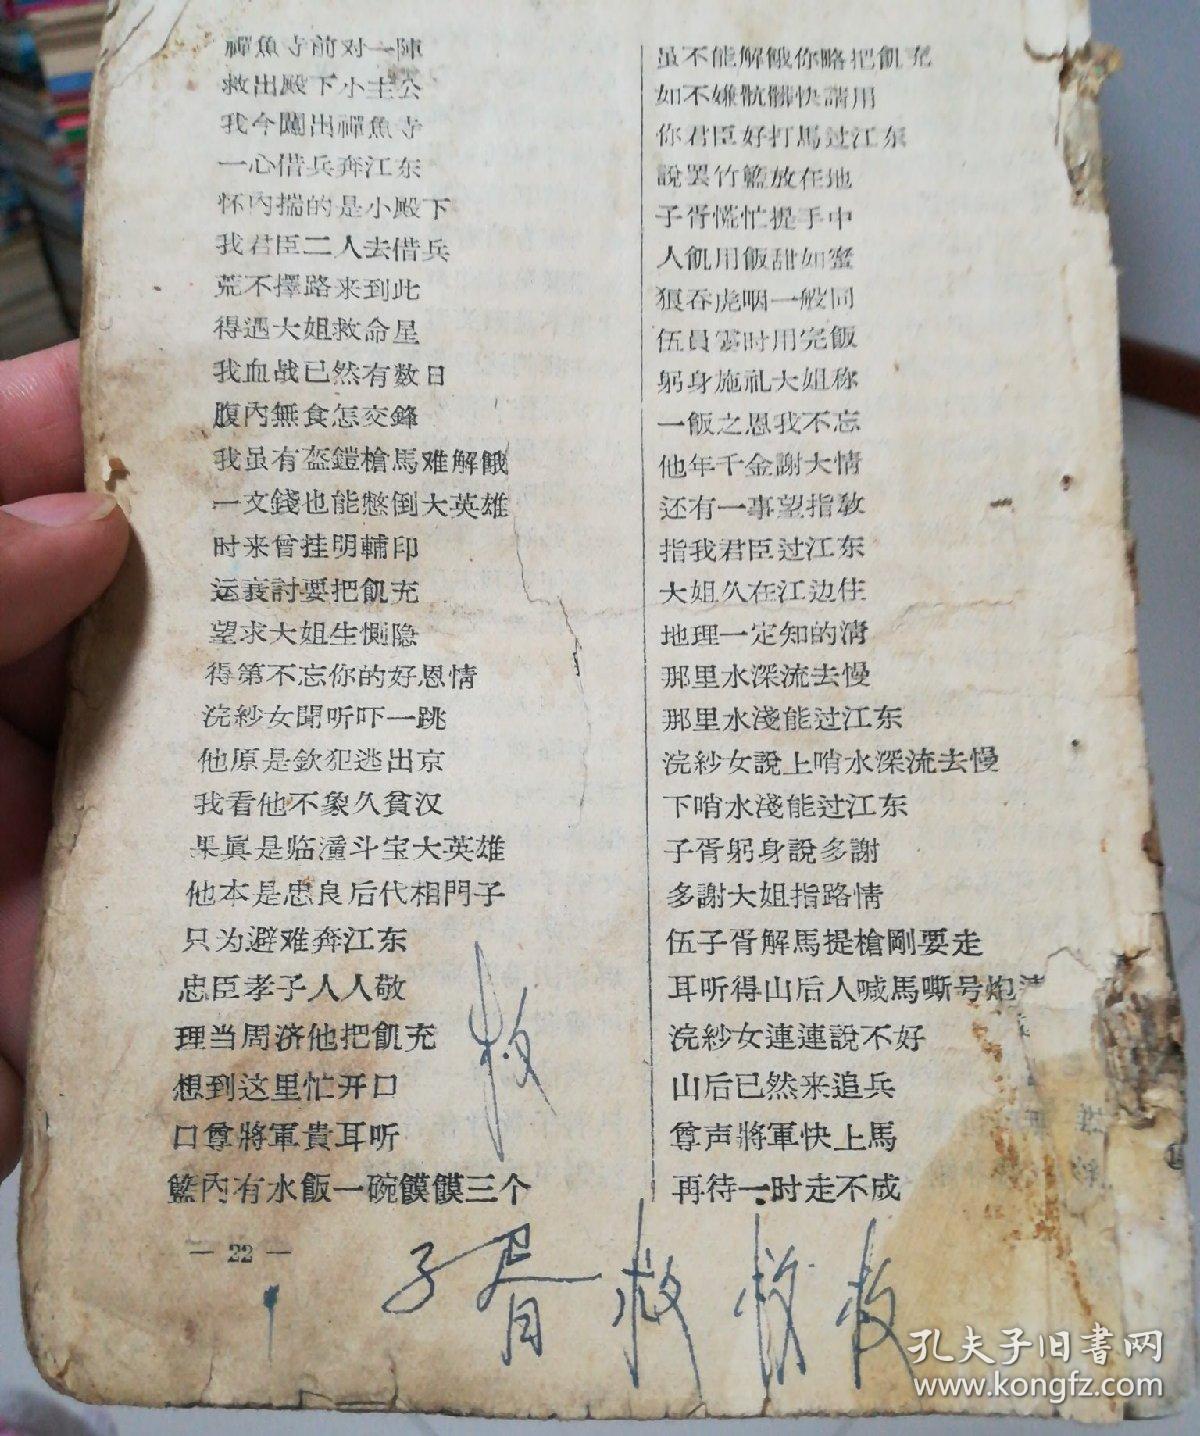 禪魚寺前对一陣
救出殿下小主公
我今闖出禪魚寺
一心借兵奔江东
怀內揣的是小殿下
我君臣二人去借兵
荒不擇路来到此
得遇大姐救命星
我血战已然有数日
腹內無食怎交鋒
我虽有盔鎧槍馬难解餓
一文錢也能憋倒大英雄
时来曾挂明輔印
运衰討要把飢充
望求大姐生惻隐
得第不忘你的好恩情
浣紗女聞听吓一跳
他原是欽犯逃出京
我看他不象久貧汉
果眞是临潼斗宝大英雄
他本是忠良后代相門子
只为避难奔江东
忠臣孝子人人敬
理当周济他把飢充
想到这里忙开口
口尊將軍貴耳听
籃內有水飯一碗饃饃三个
— 22 —
虽不能解餓你略把飢充
如不嫌骯髒快請用
你君臣好打馬过江东
說罢竹籃放在地
子胥慌忙提手中
人飢用飯甜如蜜
狼吞虎咽一般同
伍員霎时用完飯
躬身施礼大姐称
一飯之恩我不忘
他年千金謝大情
还有一事望指敎
指我君臣过江东
大姐久在江边住
地理一定知的淸
那里水深流去慢
那里水淺能过江东
浣紗女說上哨水深流去慢
下哨水淺能过江东
子胥躬身說多謝
多謝大姐指路情
伍子胥解馬提槍剛要走
耳听得山后人喊馬嘶号炮
浣紗女連連說不好
山后已然来追兵
尊声將軍快上馬
再待一时走不成
子胥
孔夫子旧书网
www.kongfz.com